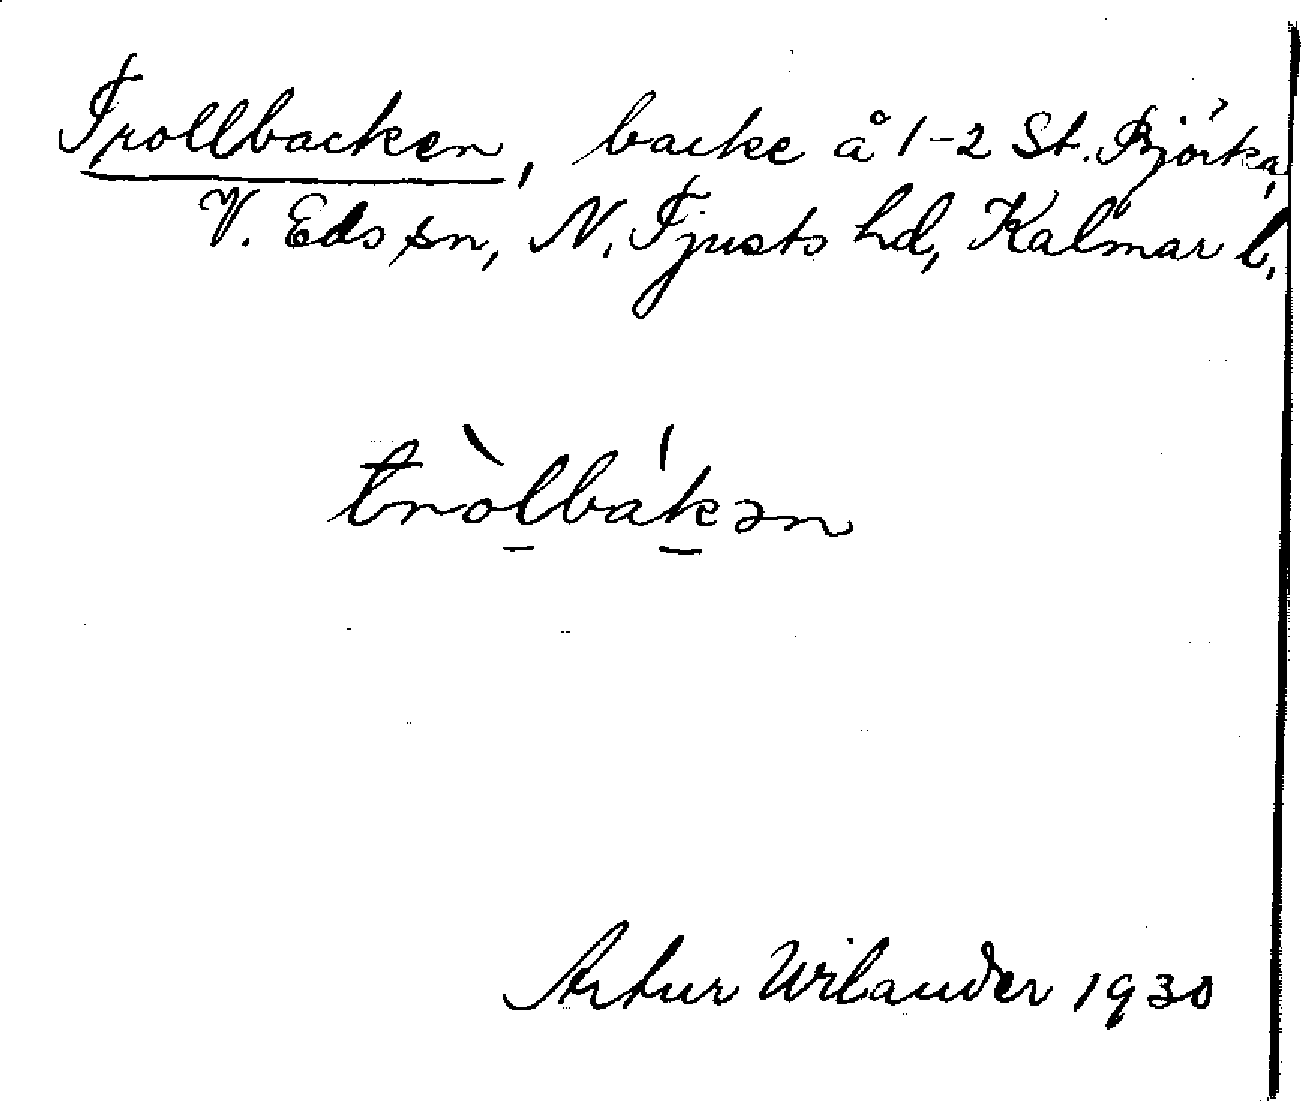 Trollbacken, backe å 1-2 St. Björka,
V. Eds sn, N. Tjusts hd, Kalmar l.
tròlbákən
Artur Wilander 1930